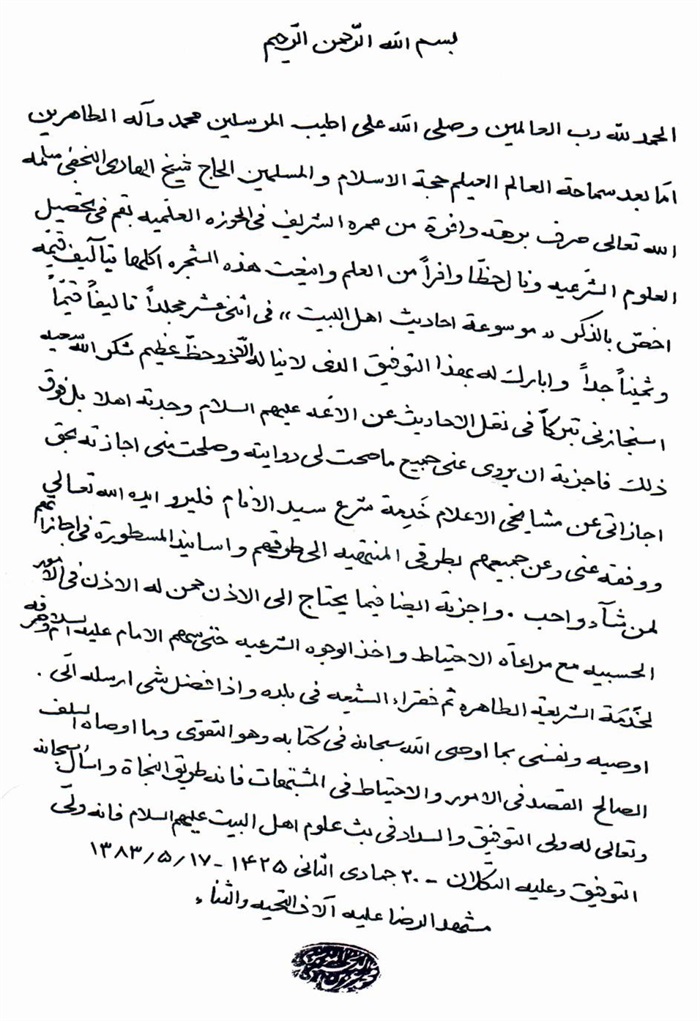 بسم الله الرحمن الرحيم
الحمد لله رب العالمين وصلى الله على اطيب المرسلين محمد وآله الطاهرين
امّا بعد سماحة العالم العيلم حجة الاسلام والمسلمين الحاج شيخ الهادى النجفى سلمه
الله تعالى صرف برهة وافرة من عمره الشريف فى الحوزه العلميه بقم فى تحصيل
العلوم الشرعيه ونال حظّا وافراً من العلم واينعت هذه الشجره اكلها بتآليف قيّمه
اخصّ بالذكر «موسوعة احاديث اهل البيت» فى اثنى عشر مجلداً تاليفاً قيّماً
وثميناً جداً وابارك له بهذا التوفيق الذى لا يناله الا ذو حظّ عظيم شكر الله سعيه
استجازنى تبركاً فى نقل الاحاديث عن الائمه عليهم السلام وجدته اهلا بل فوق
ذلك فاجزته ان يروى عنى جميع ما صحت لى روايته وصلحت منى اجازته بحق
اجازاتى عن مشايخى الاعلام خَدِمة شرع سيد الانام فليرو ايده الله تعالى
ووفقه عنى وعن جميعهم بطرقى المنتهيه الى طرقهم واسانيد المسطورة فى اجازاتهم
لمن شآء واحب . واجزته ايضا فيما يحتاج الى الاذن ممن له الاذن فى الامور
الحسبيه مع مراعاة الاحتياط واخذ الوجوه الشرعيه حتى سهم الامام عليه السلام وصرفه
لخَدَمَة الشريعة الطاهره ثم فقراء الشيعه فى بلده واذا فضل شى ارسله الىّ .
اوصيه ونفسى بما اوصى الله سبحانه فى كتابه وهو التقوى وما اوصاه السلف
الصالح القصد فى الامور والاحتياط فى المشتبهات فانه طريق النجاة واسأل سبحانه
وتعالى له ولى التوفيق والسداد فى بث علوم اهل البيت عليهم السلام فانه ولىّ
التوفيق وعليه التكلان - ٢٠ جمادى الثانى ١٤٢٥ - ١٣٨٣/٥/١٧
مشهد الرضا عليه آلاف التحيه والثناء